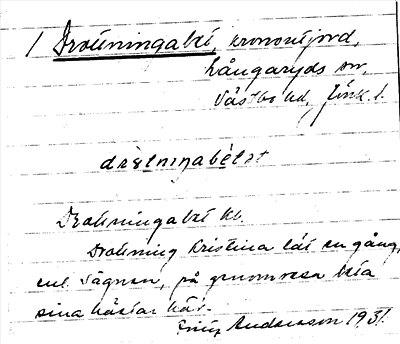 1 Drottningabet, kronoutjord,
Långaryds sn,
Västbo hd, Jönk. l.
drⱥtniŋabétət
Drottningabet hb.
Drottning Kristina lät en gång,
enl. sägnen, på genomresa beta
sina hästar här.
Andersson 1931.